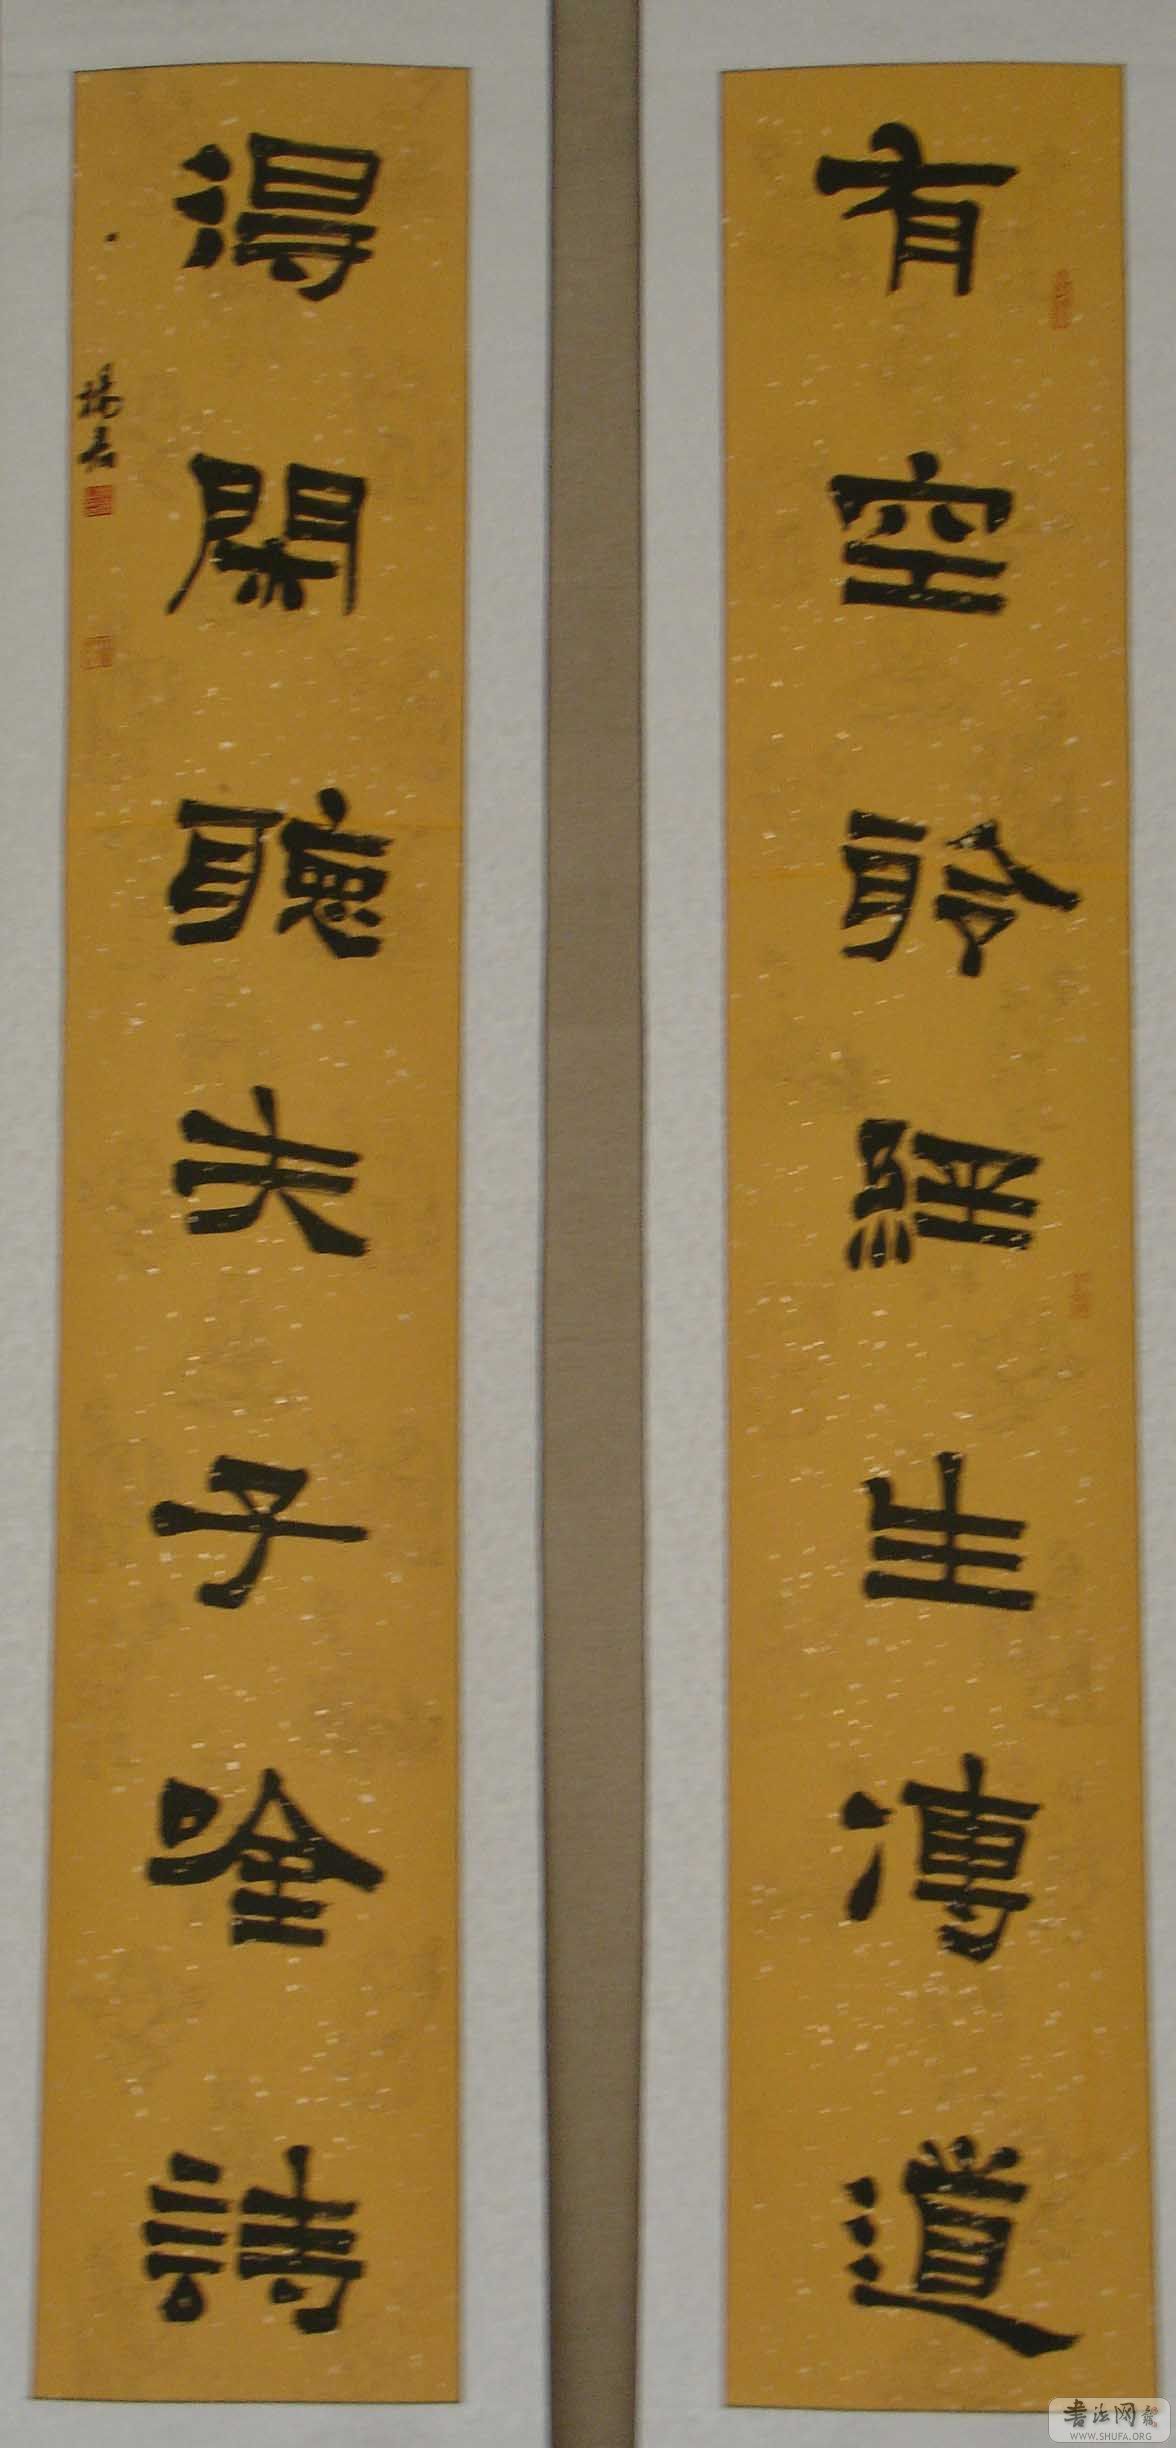 有空聆網生傳道
得閑聽夫子吟詩
書法网
WWW.SHUFA.ORG